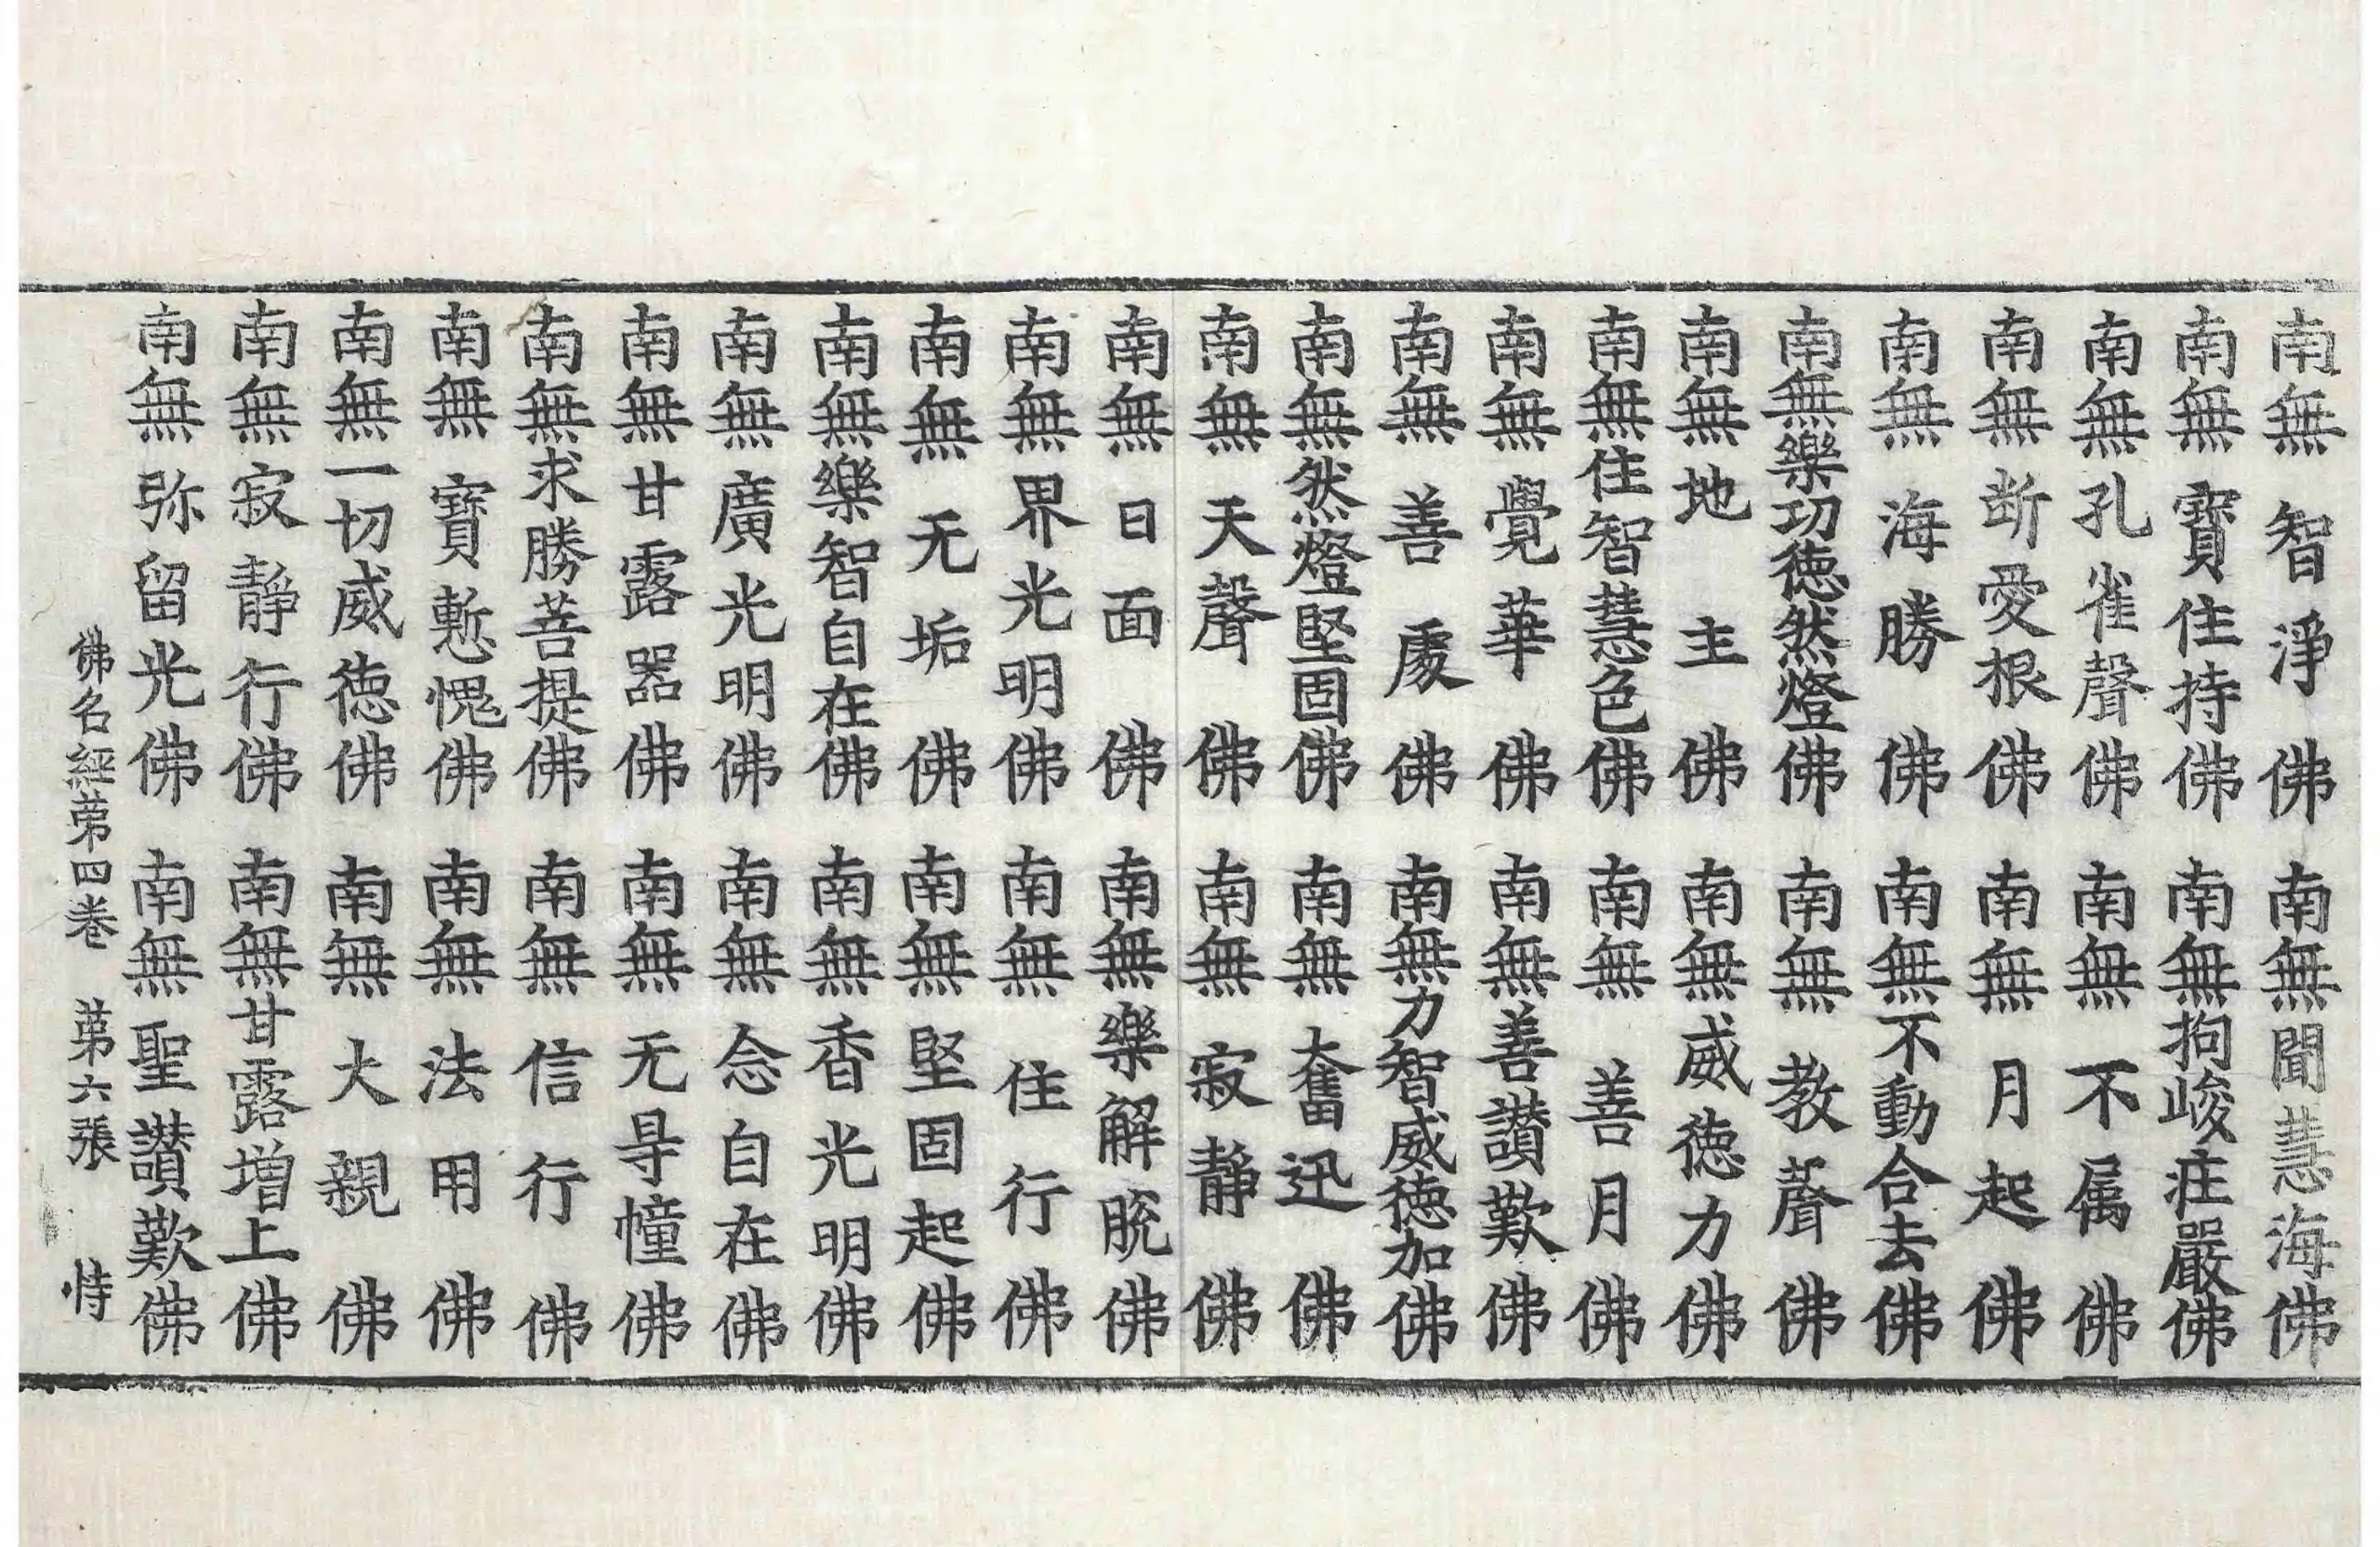 南無智淨佛　南無聞慧海佛
南無寶住持佛　南無拘峻庄嚴佛
南無孔雀聲佛　南無不属佛
南無断愛根佛　南無月起佛
南無海勝佛　南無不動合去佛
南無樂功德然燈佛　南無教聲佛
南無地主佛　南無威德力佛
南無住智慧色佛　南無善月佛
南無覺華佛　南無善讚歎佛
南無善處佛　南無力智威德加佛
南無然燈堅固佛　南無大奮迅佛
南無天聲佛　南無寂静佛
南無日面佛　南無樂解脱佛
南無界光明佛　南無住行佛
南無无垢佛　南無堅固起佛
南無樂智自在佛　南無香光明佛
南無廣光明佛　南無念自在佛
南無甘露器佛　南無无㝵幢佛
南無求勝菩提佛　南無信行佛
南無寶慙愧佛　南無法用佛
南無一切威德佛　南無大親佛
南無寂静行佛　南無甘露增上佛
南無弥留光佛　南無聖讚歎佛
佛名經苐四卷　苐六張　恃